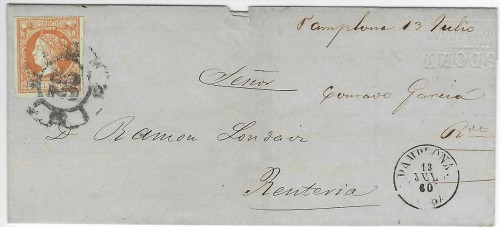 Pamplona 13 Julio
Señor
Conrado Garcia
D. Ramon Londaiz
Renteria
PAMPLONA
13
JUL
60